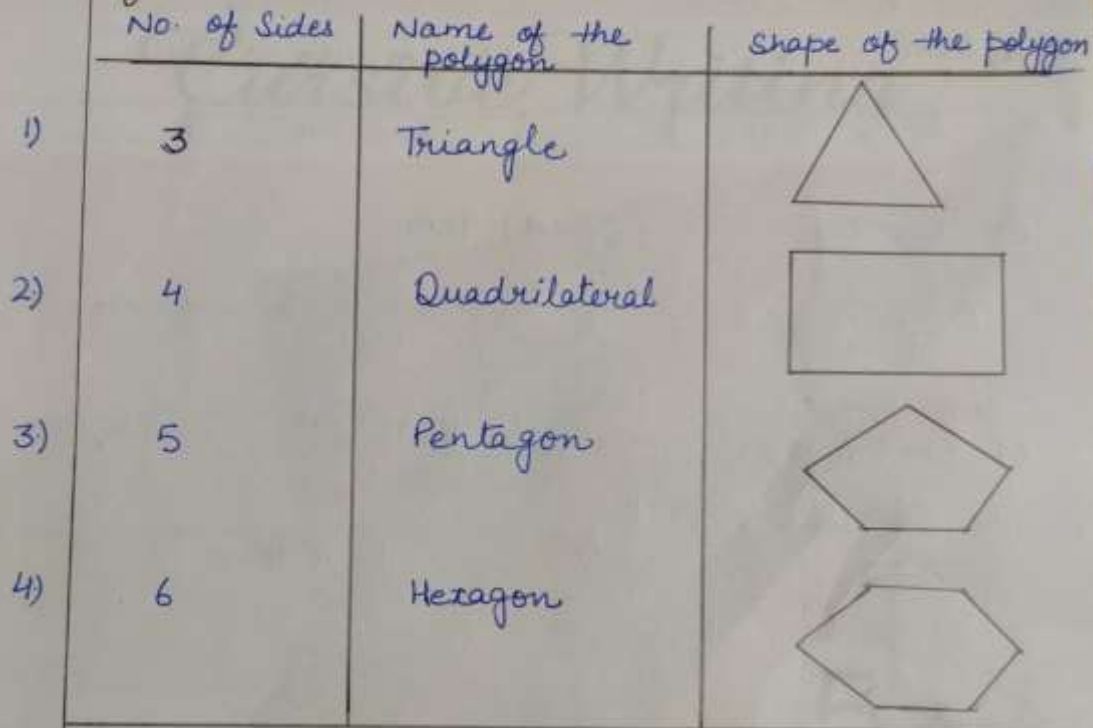 No. of Sides Name of the polygon Shape of the polygon
1) 3 Triangle
2) 4 Quadrilateral
3) 5 Pentagon
4) 6 Hexagon